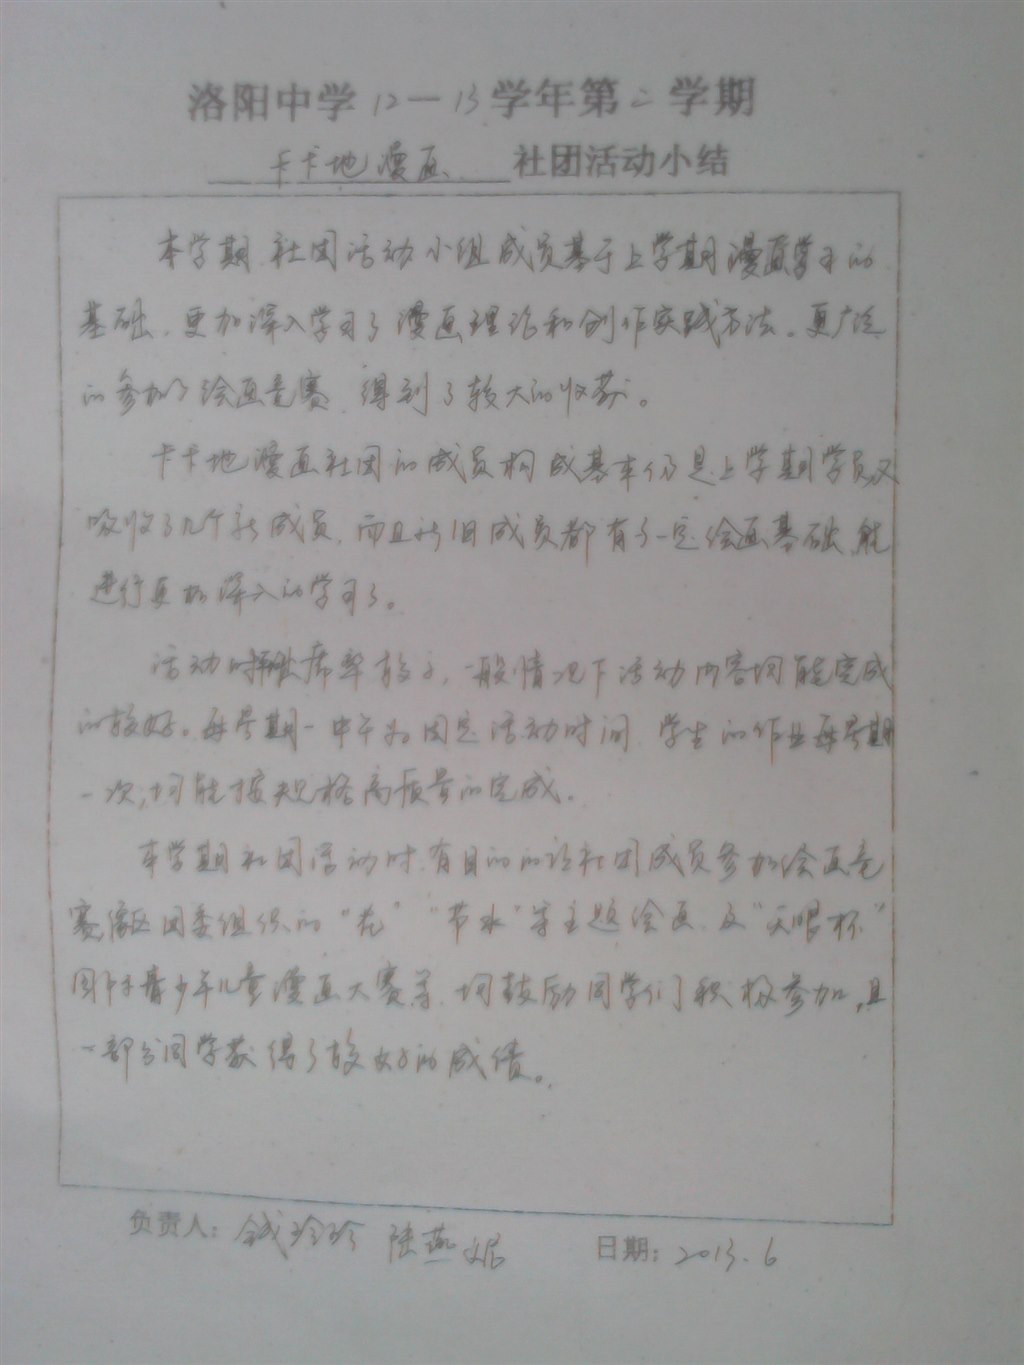 洛阳中学12—13学年第二学期
卡卡地漫画 社团活动小结
本学期 社团活动小组成员基于上学期漫画学习的
基础，更加深入学习了漫画理论和创作实践方法。更广泛
的参加了绘画竞赛，得到了较大的收获。
卡卡地漫画社团的成员构成基本仍是上学期学员，又
吸收了几个新成员，而且新旧成员都有了一定绘画基础，能
进行更加深入的学习了。
活动时 出席率较好，一般情况下活动内容均能完成
的较好。每星期一中午为固定活动时间，学生的作业每星期
一次，均能按规格高质量的完成。
本学期社团活动时，有目的的让社团成员参加绘画竞
赛，像区团委组织的“花”“节水”等主题绘画，及“天眼杯”
国际青少年儿童漫画大赛等，均鼓励同学们积极参加，且
一部分同学获得了较好的成绩。
负责人：钱玲玲 陆燕妮 日期：2013.6